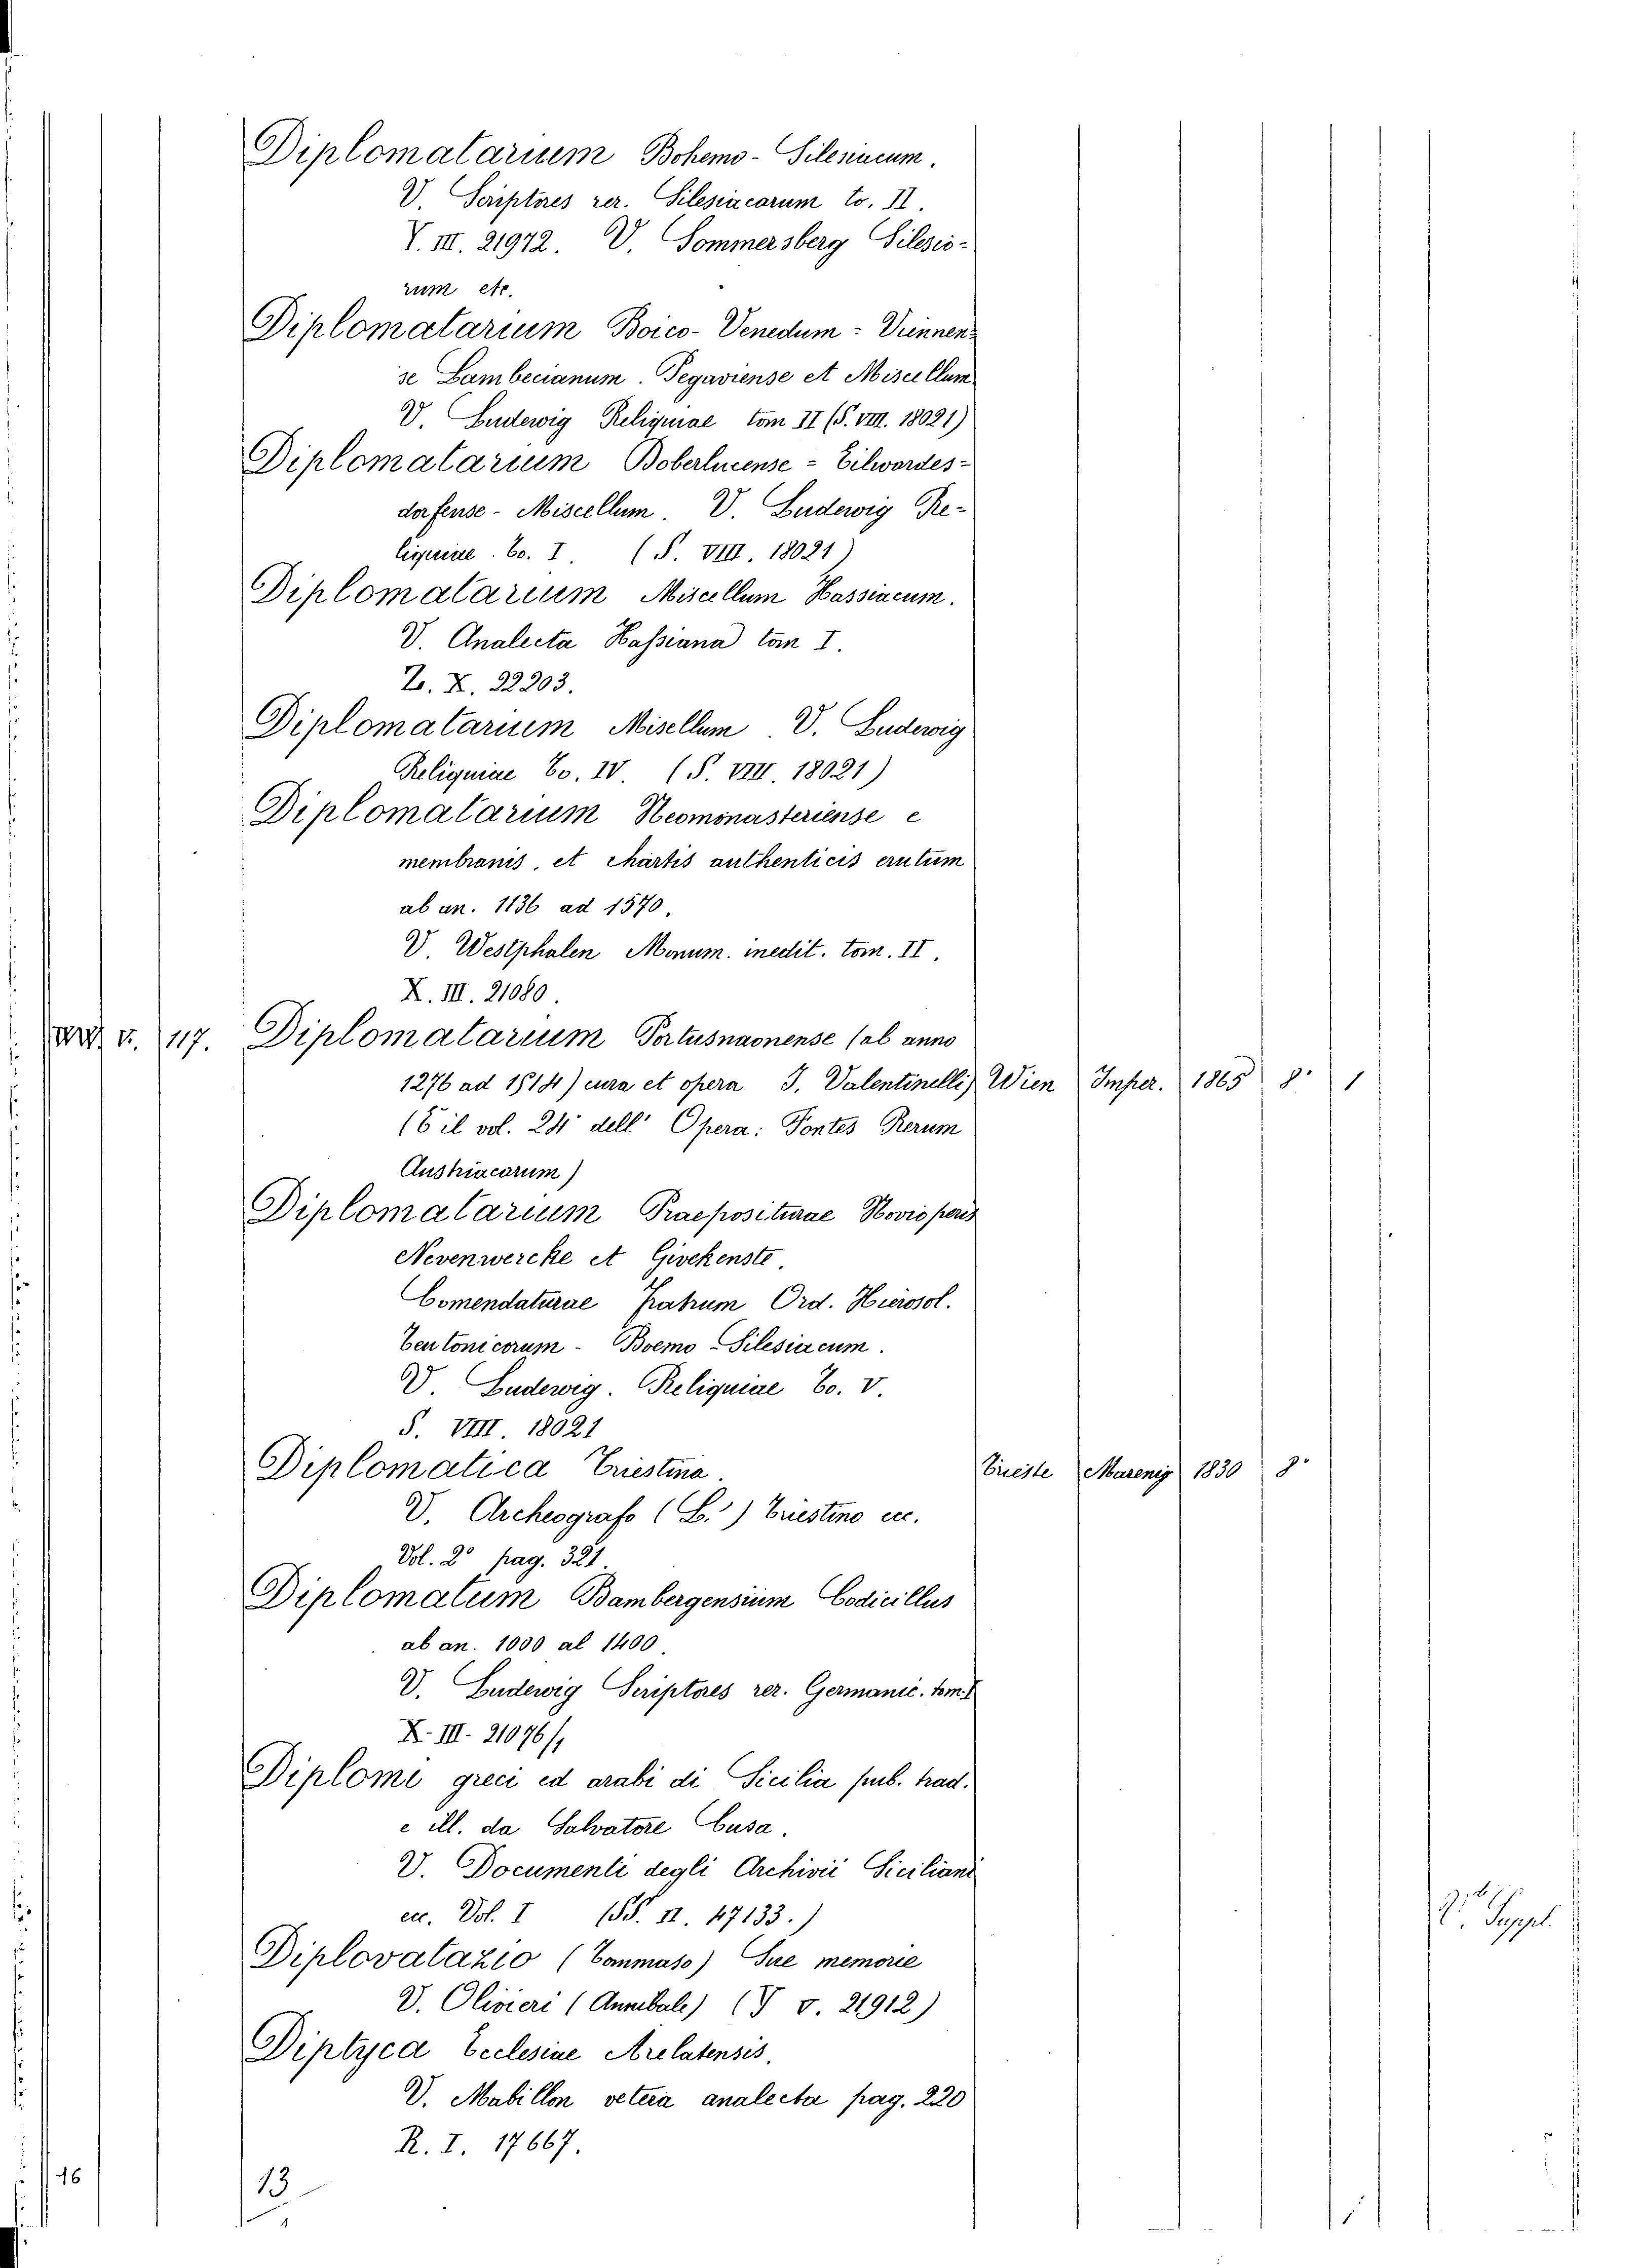 Diplomatarium Bohemo-Silesiacum.
V. Scriptores rer. Silesiacarum to. II.
Y. III. 21972. V. Sommersberg Silesio-
rum etc.
Diplomatarium Boico-Venedum-Viennen-
se Lambecianum. Pegaviense et Miscellum
V. Ludewig Reliquiae tom II (S. VIII. 18021)
Diplomatarium Boberlucense-Eilwardes-
dorfense-Miscellum. V. Ludewig Re-
liquiae. to. I. (S. VIII. 18021)
Diplomatarium Miscellum Hassiacum.
V. Analecta Hassiana tom I.
Z. X. 22203.
Diplomatarium Misellum. V. Ludewig
Reliquiae to. IV. (S. VIII. 18021)
Diplomatarium Neomonasteriense e
membranis, et chartis authenticis erutum
ab an. 1136 ad 1570.
V. Westphalen Monum. inedit. tom. II.
X. III. 21080.
V. 117. Diplomatarium Portusnaonense (ab anno
1276 ad 1514) cura et opera J. Valentinelli) Wien Imper. 1865 8° 1
(È il vol. 24° dell' Opera: Fontes Rerum
Austriacarum)
Diplomatarium Praepositurae Novioperis
Nevenwercke et Givekenste.
Comendaturae fratrum Ord. Hierosol.
Teutonicorum - Boemo-Silesiacum.
V. Ludewig. Reliquiae to. V.
S. VIII. 18021
Diplomatica Triestina. Trieste Marenig 1830 8°
V. Archeografo (L.') Triestino ecc.
Vol. 2° pag. 321.
Diplomatum Bambergensium Codicillus
ab an. 1000 al 1400.
V. Ludewig Scriptores rer. Germanic. tom. I
X. III. 21076/1
Diplomi greci ed arabi di Sicilia pub. trad.
e ill. da Salvatore Cusa.
V. Documenti degli Archivii Siciliani
ecc. Vol. I (SS. II. 47133.) V. Suppl.
Diplovatazio (Tommaso) Sue memorie
V. Olivieri (Annibale) (Y V. 21912)
Diptyca Ecclesiae Arelatensis.
V. Mabillon vetera analecta pag. 220
R. I. 17667.
16
13